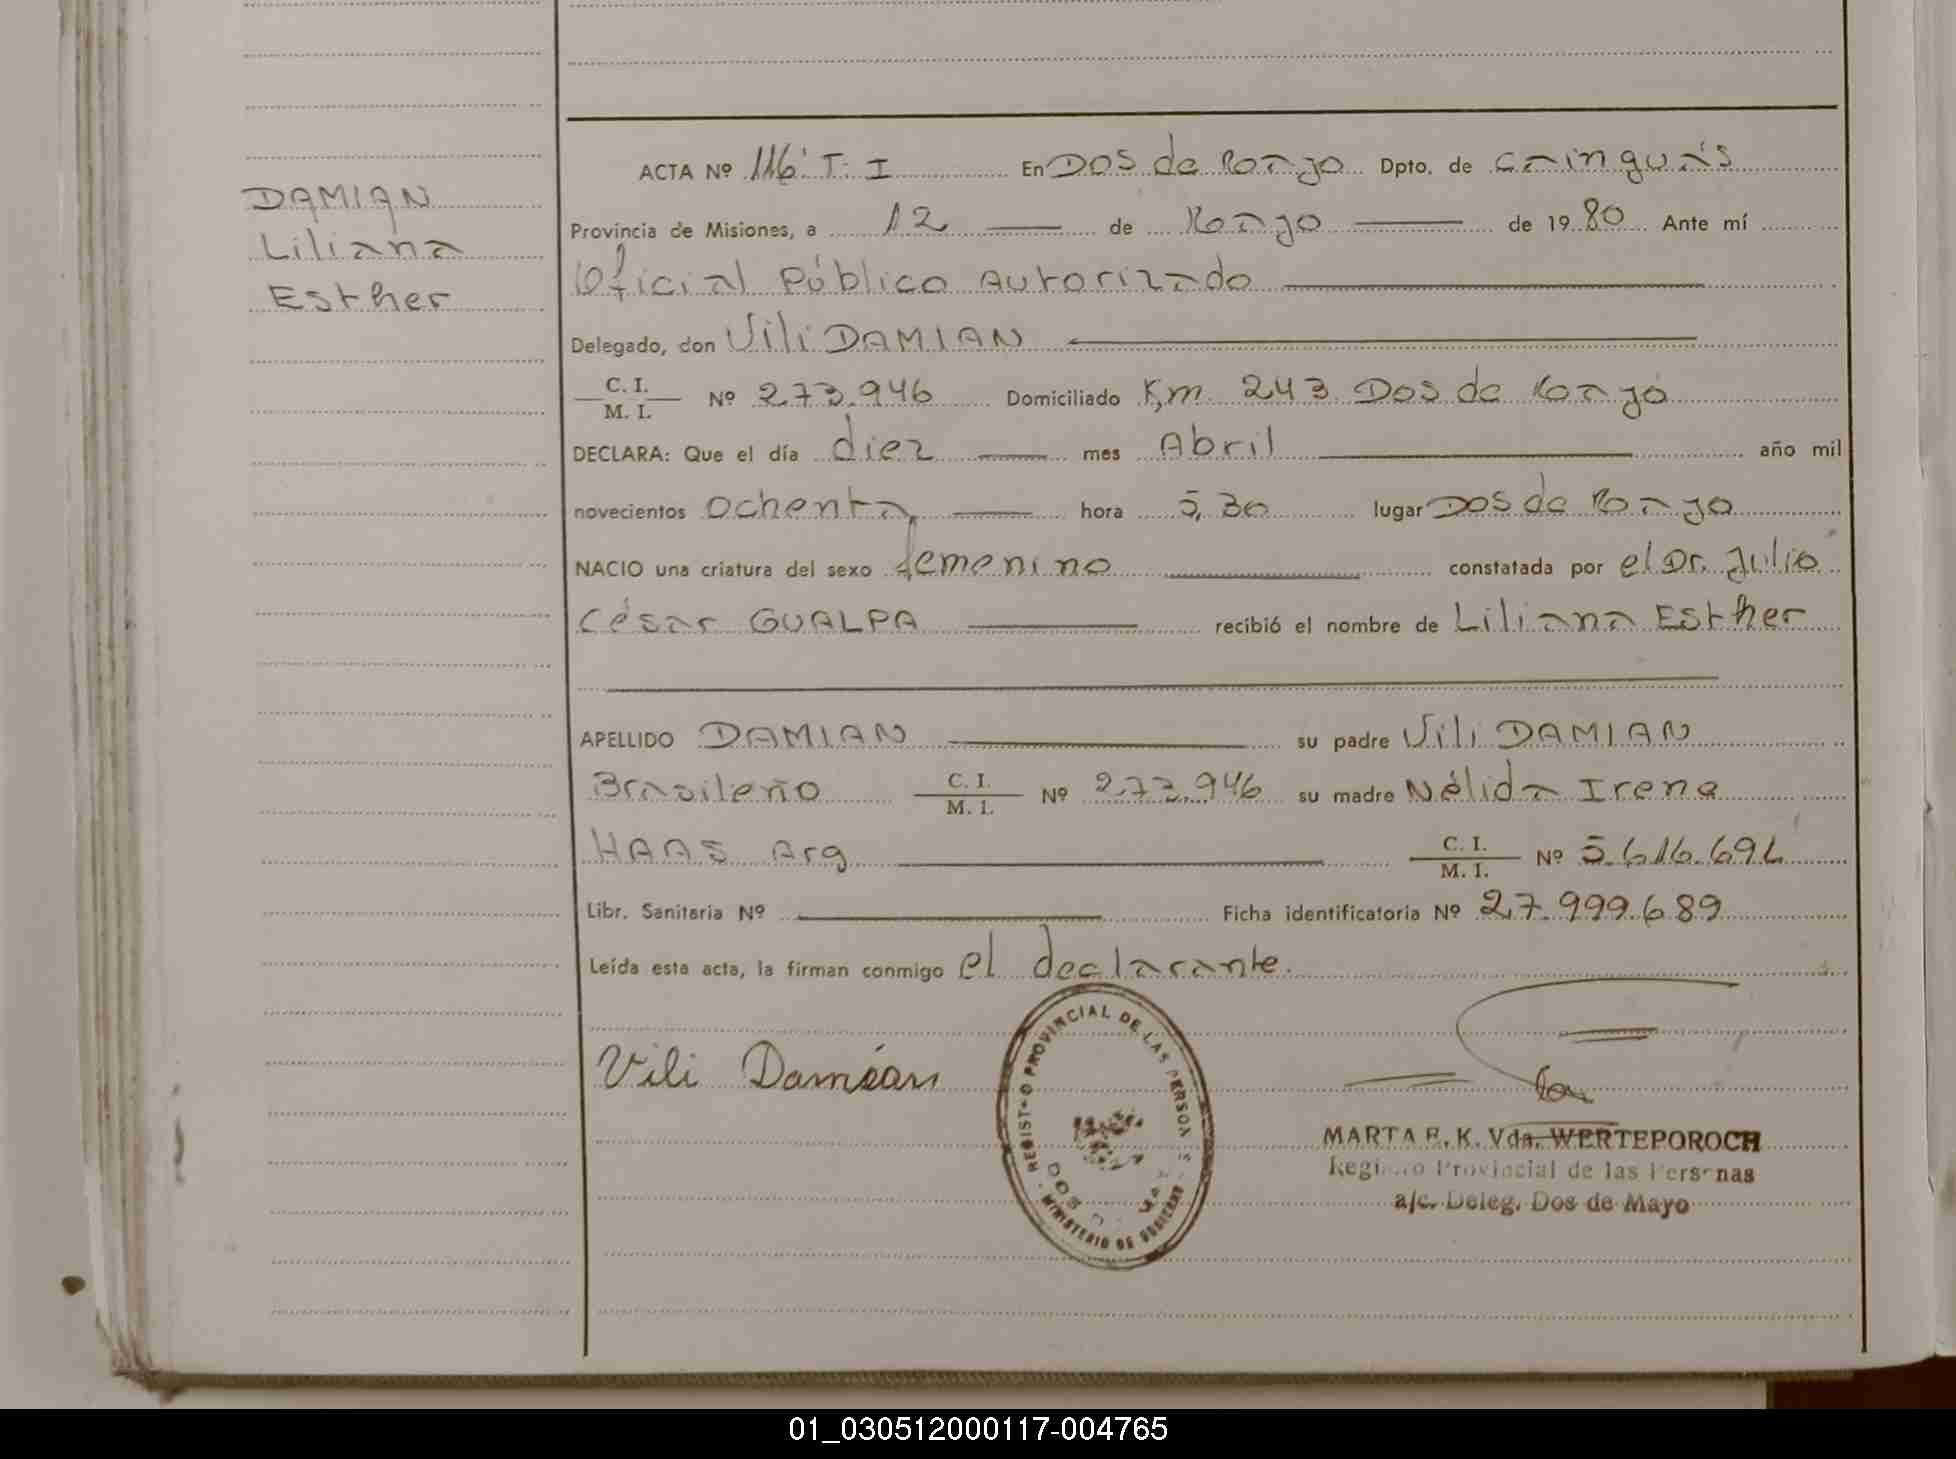 DAMIAN
Liliana
Esther
ACTA Nº 116 T: I En Dos de Mayo Dpto. de Cainguás
Provincia de Misiones, a 12 de Mayo de 1980 Ante mí
Oficial Público Autorizado
Delegado, don Vili DAMIAN
C. I.
M. I. Nº 273.946 Domiciliado Km 243 Dos de Mayo
DECLARA: Que el día diez mes Abril año mil
novecientos ochenta hora 5,30 lugar Dos de Mayo
NACIO una criatura del sexo femenino constatada por el Dr. Julio
César GUALPA recibió el nombre de Liliana Esther
APELLIDO DAMIAN su padre Vili DAMIAN
Brasileño C. I.
M. I. Nº 273.946 su madre Nélida Irene
HAAS Arg C. I.
M. I. Nº
Libr. Sanitaria Nº Ficha identificatoria Nº 27.999.689
Leída esta acta, la firman conmigo el declarante.
Vili Damián
REGISTRO PROVINCIAL DE LAS PERSONAS
DOS
MINISTERIO DE GOBIERNO
MARTA E. K. Vda. WERTEPOROCH
Registro Provincial de las Personas
a/c. Deleg. Dos de Mayo
01_030512000117-004765